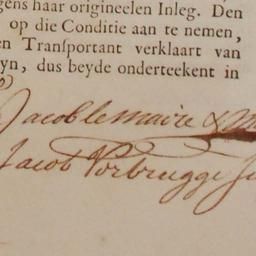 gens haar origineelen Inleg. Den
op die Conditie aan te nemen,
en Transportant verklaart van
yn, dus beyde onderteekent in
Jacob lemaire &
Jacob Verbrugge